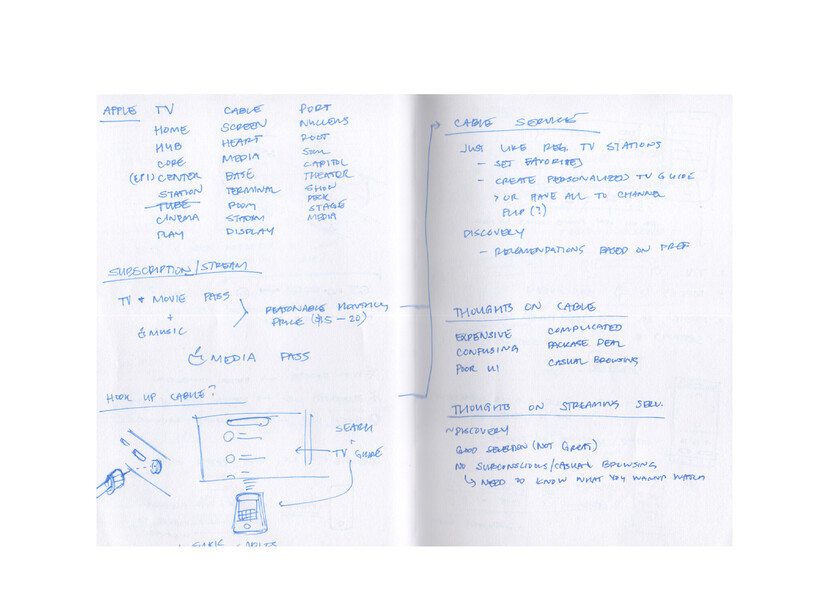 APPLE TV CABLE PORT
HOME SCREEN NUCLEUS
HUB HEART ROOT
CORE MEDIA SOUL
(EPI) CENTER BASE CAPITOL
STATION TERMINAL THEATER
TUBE ROOM SHOW
CINEMA STADIUM DOCK
PLAY DISPLAY STAGE
MEDIA
SUBSCRIPTION/STREAM
TV + MOVIE PASS
+
MUSIC
REASONABLE MONTHLY
PRICE ($15-20)
MEDIA PASS
HOOK UP CABLE?
SEARCH
+
TV GUIDE
CABLE SERVICE
JUST LIKE REG. TV STATIONS
- SET FAVORITES
- CREATE PERSONALIZED TV GUIDE
> OR HAVE ALL TO CHANNEL
FLIP (?)
DISCOVERY
- RECOMENDATIONS BASED ON PREF
THOUGHTS ON CABLE
EXPENSIVE COMPLICATED
CONFUSING PACKAGE DEAL
POOR UI CASUAL BROWSING
THOUGHTS ON STREAMING SERV.
~DISCOVERY
GOOD SELECTION (NOT GREAT)
NO SUBCONSCIOUS/CASUAL BROWSING
↳ NEED TO KNOW WHAT YOU WANNA WATCH